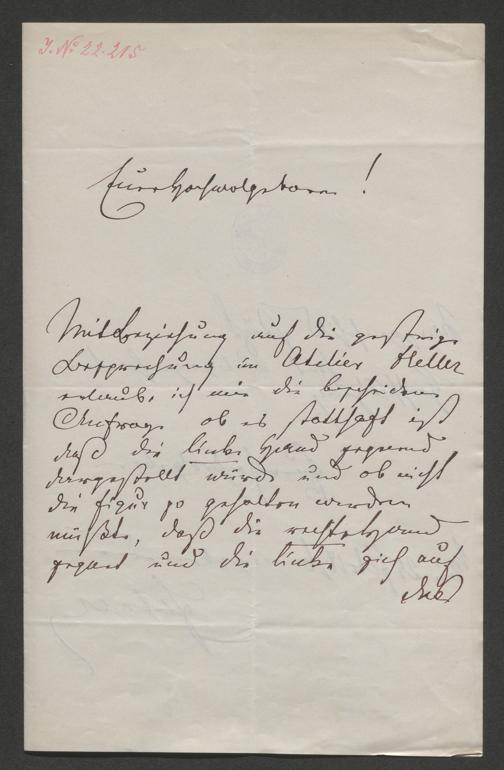 I. No 22.215
Euer Hochwolgeboren!
Mit Beziehung auf die gestrige
Besprechung im Atelier Heller
erlaube ich mir die bescheidene
Anfrage ob es statthaft ist
daß die linke Hand segnend
dargestellt würde und ob nicht
die Figur so gehalten werden
müßte, daß die rechte Hand
segnet und die linke sich auf
das